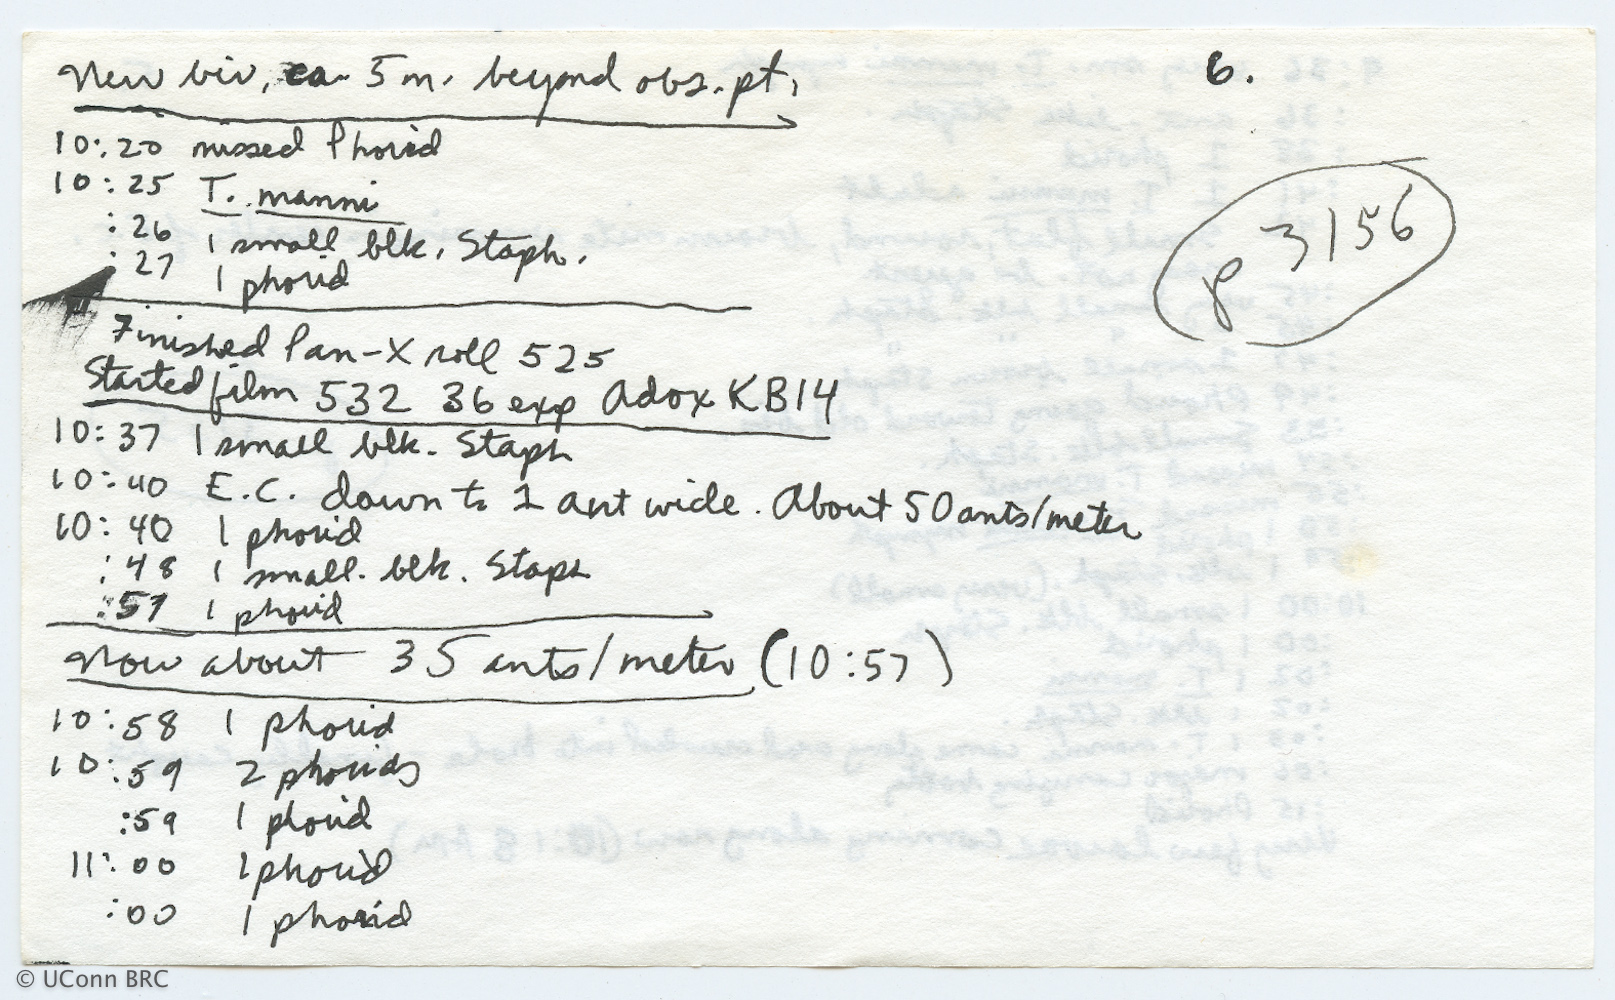 New biv, ca. 5 m. beyond obs. pt.
6.
10:20 missed Phorid
10:25 T. manni
:26 1 small blk. Staph.
:27 1 phorid
p 3156
Finished Pan-X roll 525
Started film 532 36 exp Adox KB14
10:37 1 small blk. Staph
10:40 E.C. down to 1 ant wide. About 50 ants/meter
10:40 1 phorid
:48 1 small. blk. Staph
:57 1 phorid
Now about 35 ants/meter (10:57)
10:58 1 phorid
10:59 2 phorids
:59 1 phorid
11:00 1 phorid
:00 1 phorid
© UConn BRC